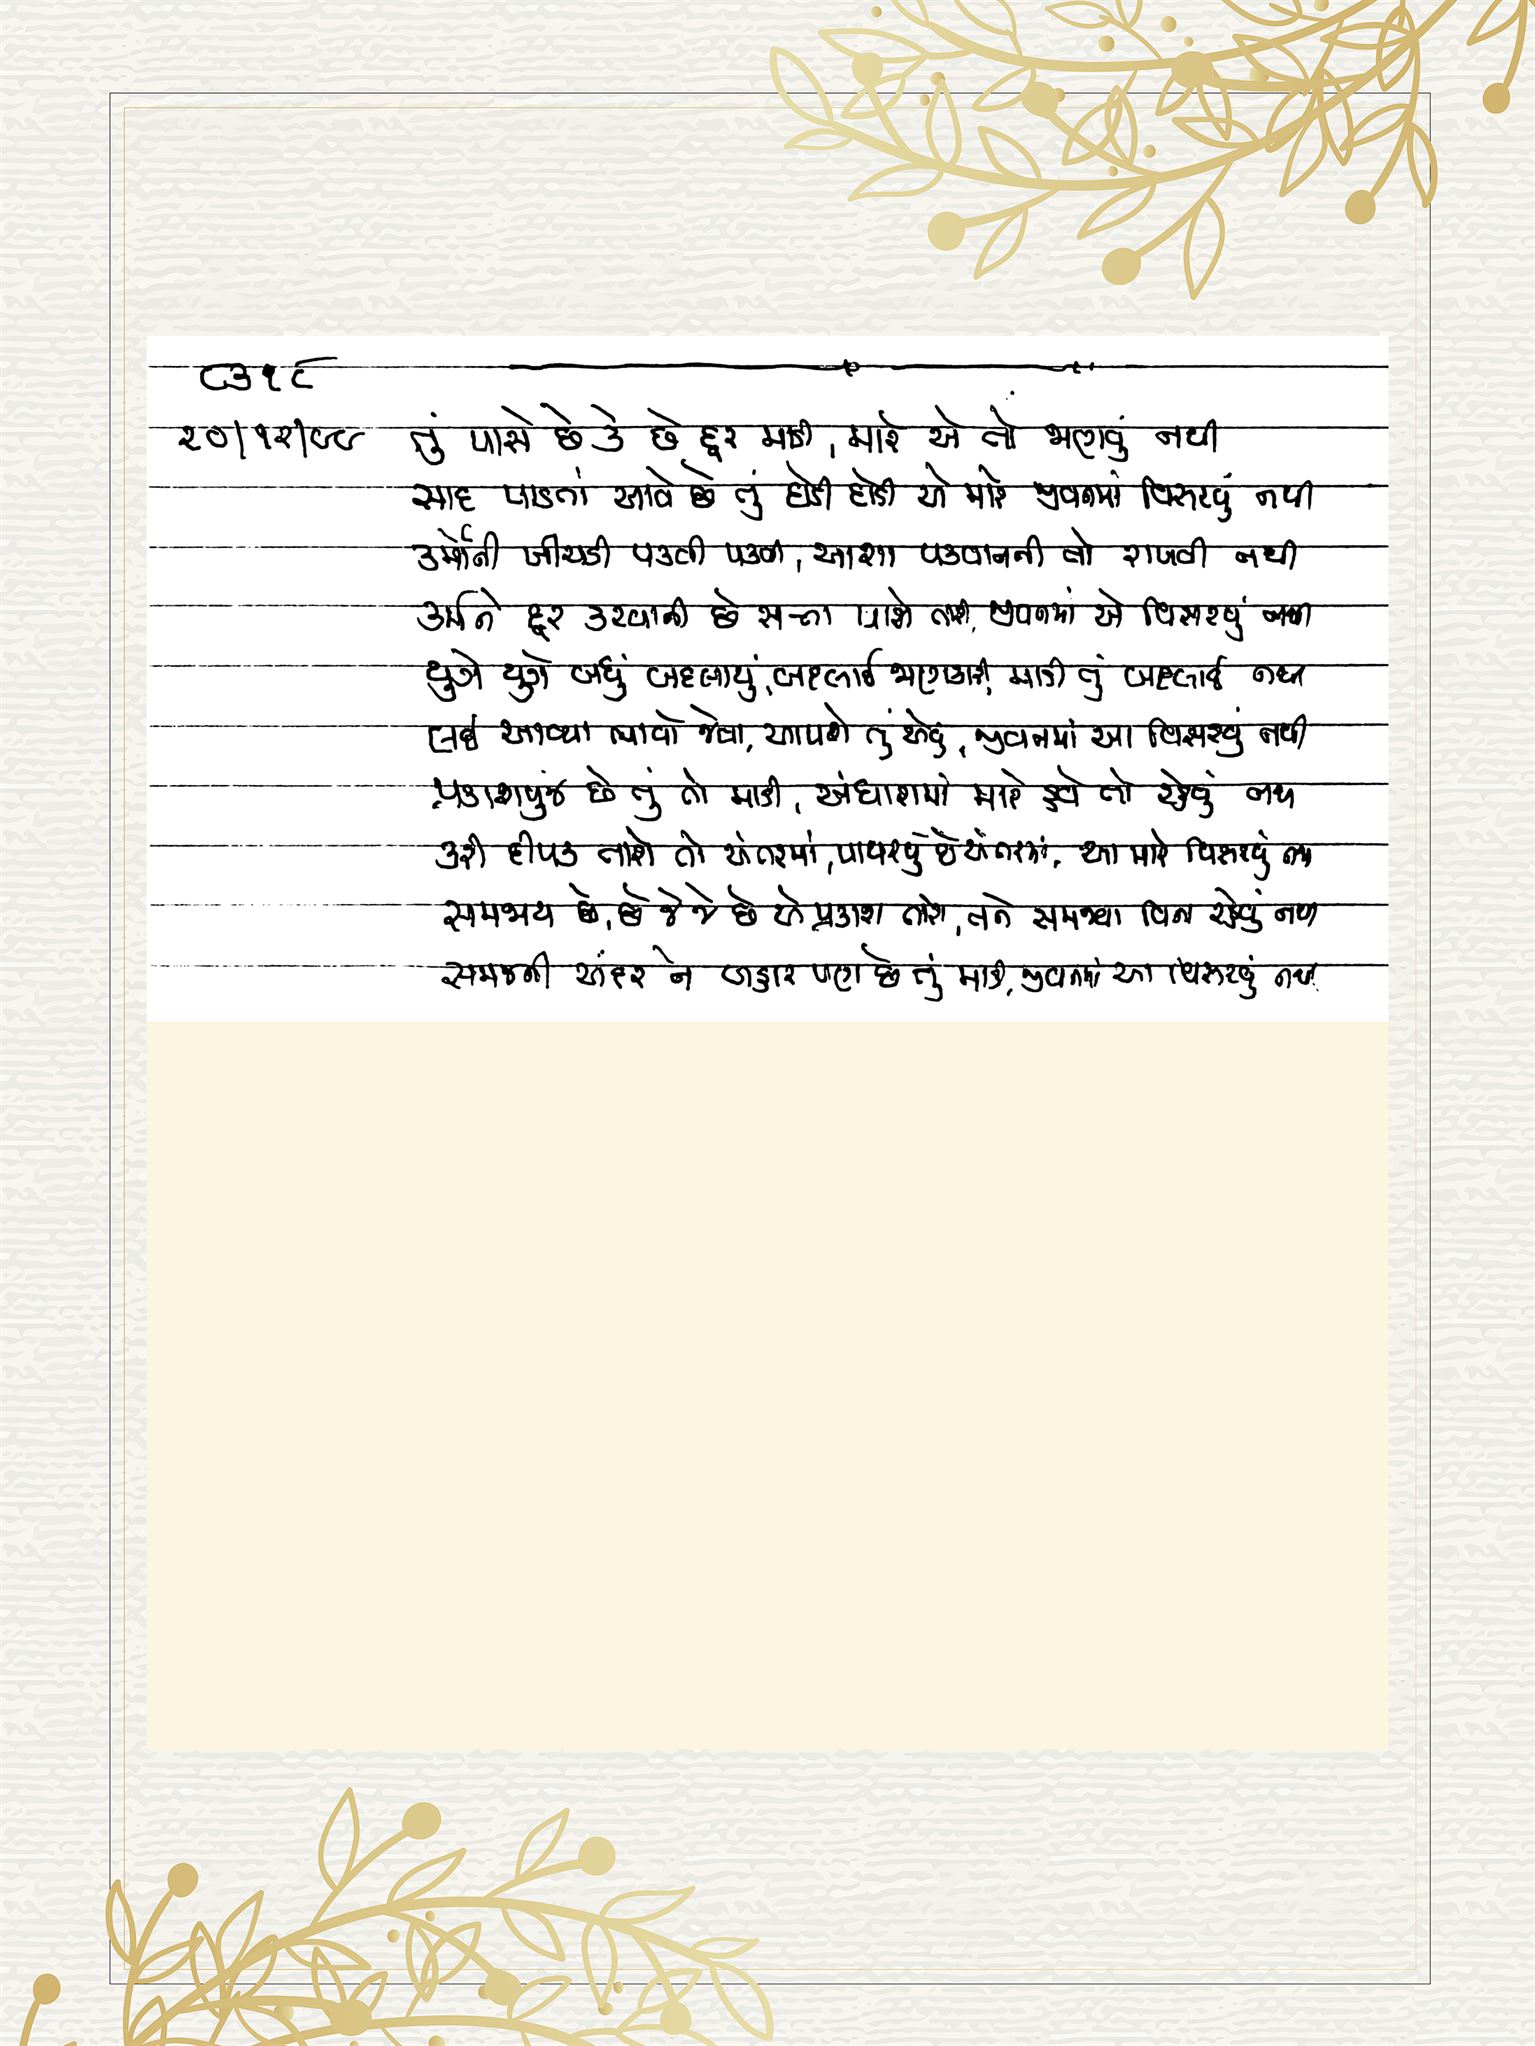 ૮૩૧૯
૨૦/૧૨/૯૯ તું પાસે છે કે છે દૂર માડી, મારે એ તો જાણવું નથી
સાદ પાડતાં આવે છે તું દોડી દોડી એ મારે જીવનમાં વિસરવું નથી
કર્મોની ખીચડી પકવી પકવી, આશા પકવાનની તો રાખવી નથી
કર્મને દૂર કરવાની છે સત્તા પાસે તારી, જીવનમાં એ વિસરવું નથી
યુગે યુગે બધું બદલાયું, બદલાઈ જાણકારી, માડી તું બદલાઈ નથી
લઈ આવ્યા ભાવો જેવા, આપશે તું એવું, જીવનમાં આ વિસરવું નથી
પ્રકાશપુંજ છે તું તો માડી, અંધારામાં મારે હવે તો રહેવું નથી
કરી દીપક તારો તો અંતરમાં, પાથરવું છે અંતરમાં, આ મારે વિસરવું નથી
સમજાય છે, છે જે જે છે એ પ્રકાશ તારો, તને સમજ્યા વિના રહેવું નથી
સમજની અંદર ને બહાર પણ છે તું માડી, જીવનમાં આ વિસરવું નથી